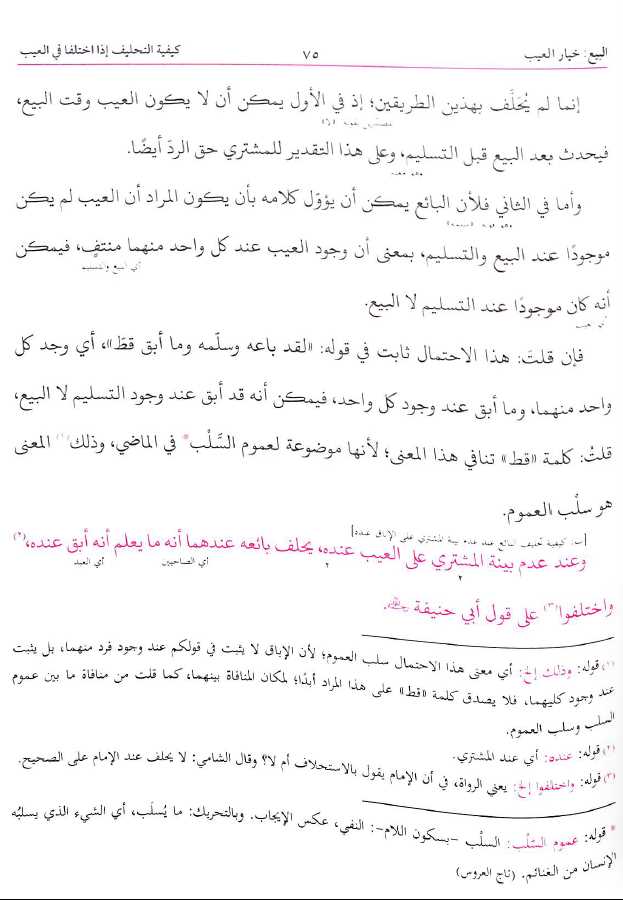 البيع: خيار العيب ٧٥ كيفية التحليف إذا اختلفا في العيب
إنما لم يُحَلَّف بهذين الطريقين؛ إذ في الأول يمكن أن لا يكون العيب وقت البيع،
فيحدث بعد البيع قبل التسليم، وعلى هذا التقدير للمشتري حق الردّ أيضًا.
وأما في الثاني فلأن البائع يمكن أن يؤوّل كلامه بأن يكون المراد أن العيب لم يكن
موجودًا عند البيع والتسليم، بمعنى أن وجود العيب عند كل واحد منهما منتفٍ، فيمكن
أي البيع والتسليم
أنه كان موجودًا عند التسليم لا البيع.
فإن قلتَ: هذا الاحتمال ثابت في قوله: «لقد باعه وسلّمه وما أبق قطّ»، أي وجد كل
واحد منهما، وما أبق عند وجود كل واحد، فيمكن أنه قد أبق عند وجود التسليم لا البيع،
قلتُ: كلمة «قط» تنافي هذا المعنى؛ لأنها موضوعة لعموم السَّلْب* في الماضي، وذلك(١) المعنى
هو سلْب العموم.
[ب: كيفية تحليف البائع عند عدم بينة المشتري على الإباق عنده]
وعند عدم بينة المشتري على العيب عنده، يحلف بائعه عندهما أنه ما يعلم أنه أبق عنده،(٢)
أي الصاحبين أي العبد
واختلفوا(٣) على قول أبي حنيفة رحمه الله.
(١) قوله: وذلك إلخ: أي معنى هذا الاحتمال سلب العموم؛ لأن الإباق لا يثبت في قولكم عند وجود فرد منهما، بل يثبت
عند وجود كليهما، فلا يصدق كلمة «قط» على هذا المراد أبدًا؛ لمكان المنافاة بينهما، كما قلت من منافاة ما بين عموم
السلب وسلب العموم.
(٢) قوله: عنده: أي عند المشتري.
(٣) قوله: واختلفوا إلخ: يعني الرواة، في أن الإمام يقول بالاستحلاف أم لا؟ وقال الشامي: لا يحلف عند الإمام على الصحيح.
* قوله: عموم السّلْب: السلْب -بسكون اللام-: النفي، عكس الإيجاب. وبالتحريك: ما يُسلَب، أي الشيء الذي يسلبُه
الإنسان من الغنائم. (تاج العروس)